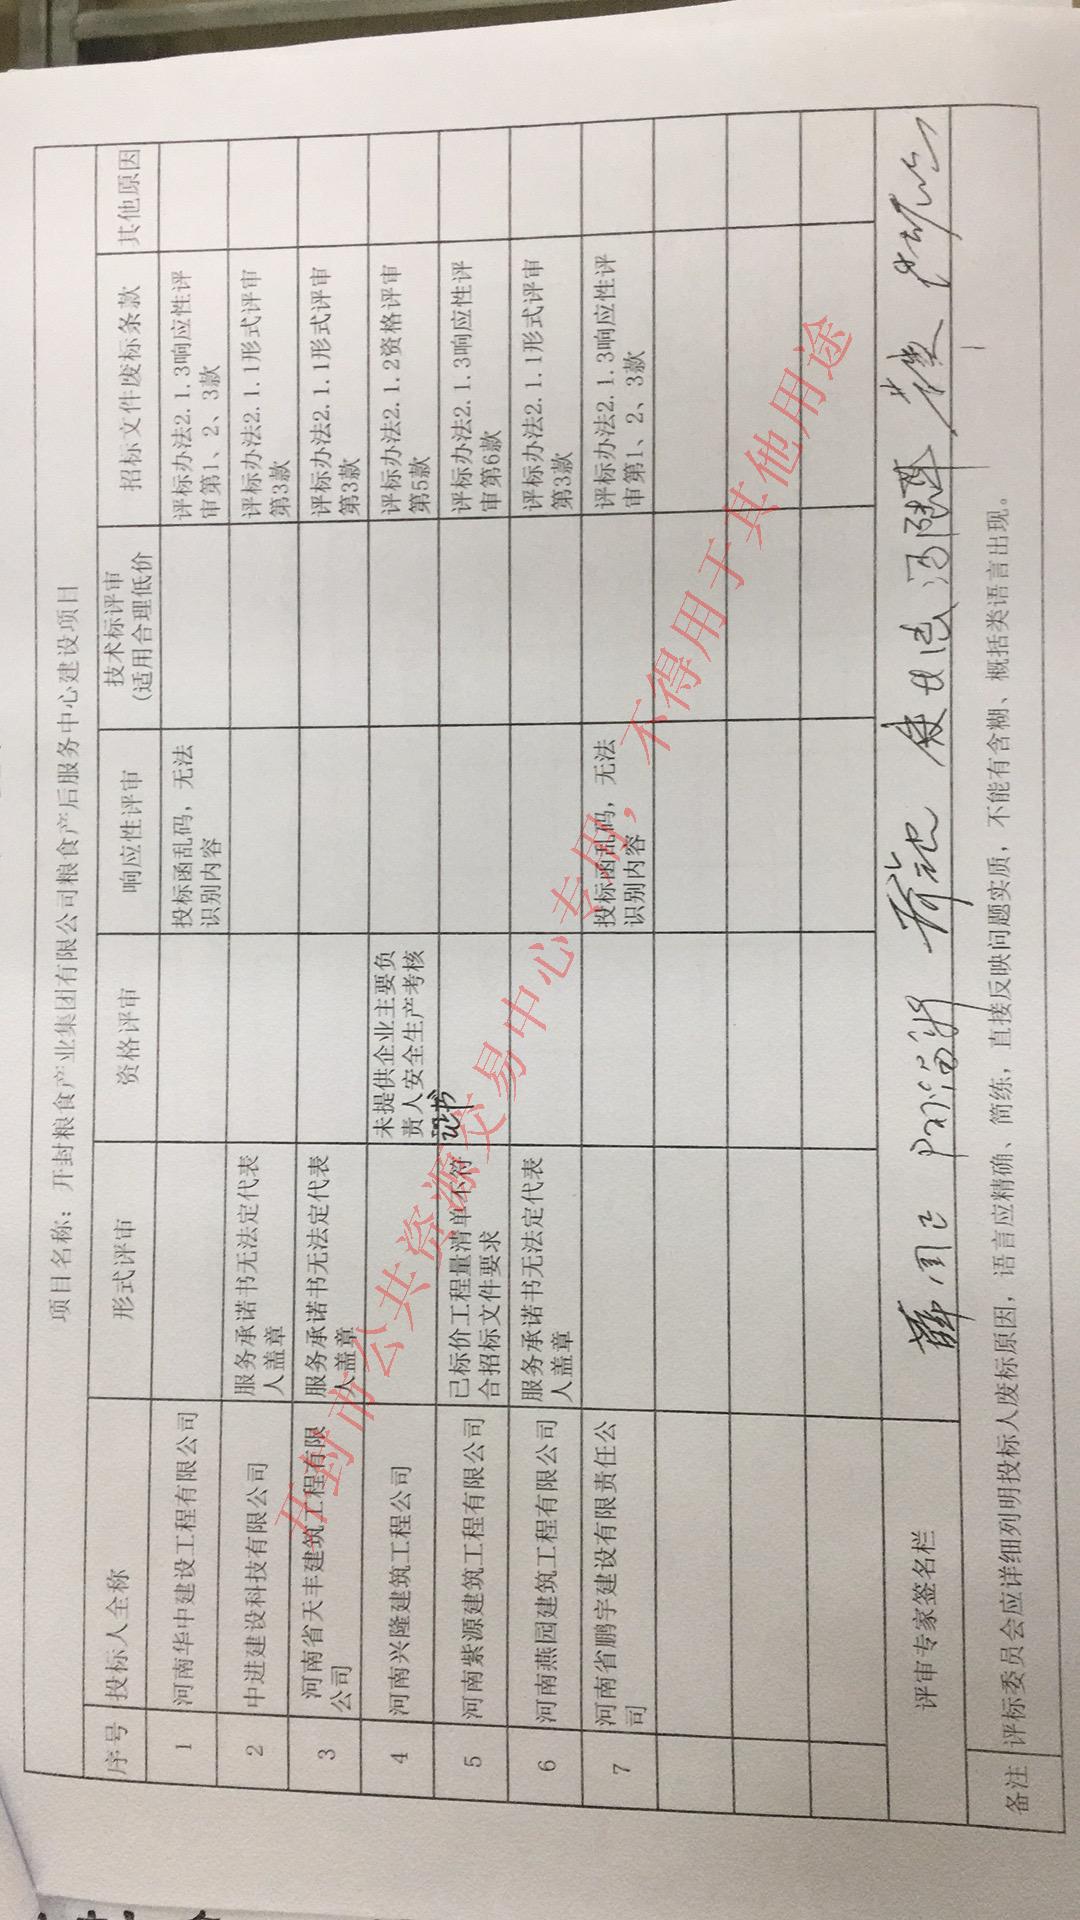 项目名称：开封粮食产业集团有限公司粮食产后服务中心建设项目
序号 投标人全称 形式评审 资格评审 响应性评审 技术标评审 招标文件废标条款 其他原因
(适用合理低价
1 河南华中建设工程有限公司 投标函乱码，无法 评标办法2.1.3响应性评
识别内容 审第1、2、3款
2 中进建设科技有限公司 服务承诺书无法定代表 评标办法2.1.1形式评审
人盖章 第3款
3 河南省天丰建筑工程有限 服务承诺书无法定代表 评标办法2.1.1形式评审
公司 人盖章 第3款
4 河南兴隆建筑工程公司 未提供企业主要负 评标办法2.1.2资格评审
责人安全生产考核 第5款
证书
5 河南紫源建筑工程有限公司 已标价工程量清单不符 评标办法2.1.3响应性评
合招标文件要求 审第6款
6 河南燕园建筑工程有限公司 服务承诺书无法定代表 评标办法2.1.1形式评审
人盖章 第3款
7 河南省鹏宇建设有限责任公 投标函乱码，无法 评标办法2.1.3响应性评
司 识别内容 审第1、2、3款
评审专家签名栏
备注 评标委员会应详细列明投标人废标原因，语言应精确、简练，直接反映问题实质，不能有含糊、概括类语言出现。
开封市公共资源交易中心专用，不得用于其他用途